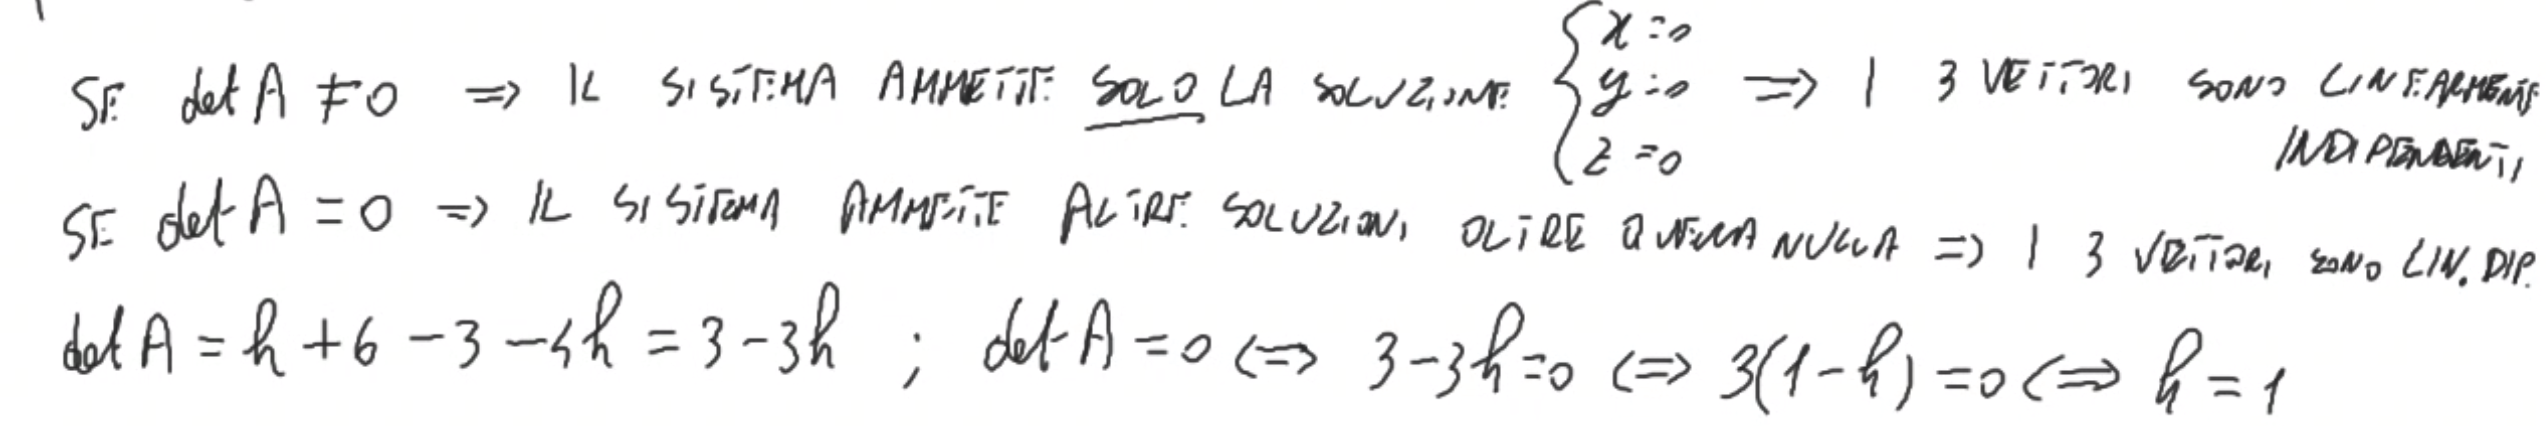 SE det A ≠ 0 => IL SISTEMA AMMETTE SOLO LA SOLUZIONE { x=0 y=0 z=0 => I 3 VETTORI SONO LINEARMENTE INDIPENDENTI
SE det A = 0 => IL SISTEMA AMMETTE ALTRE SOLUZIONI OLTRE QUELLA NULLA => I 3 VETTORI SONO LIN. DIP.
det A = h + 6 - 3 - 4h = 3 - 3h ; det A = 0 <=> 3 - 3h = 0 <=> 3(1-h) = 0 <=> h = 1